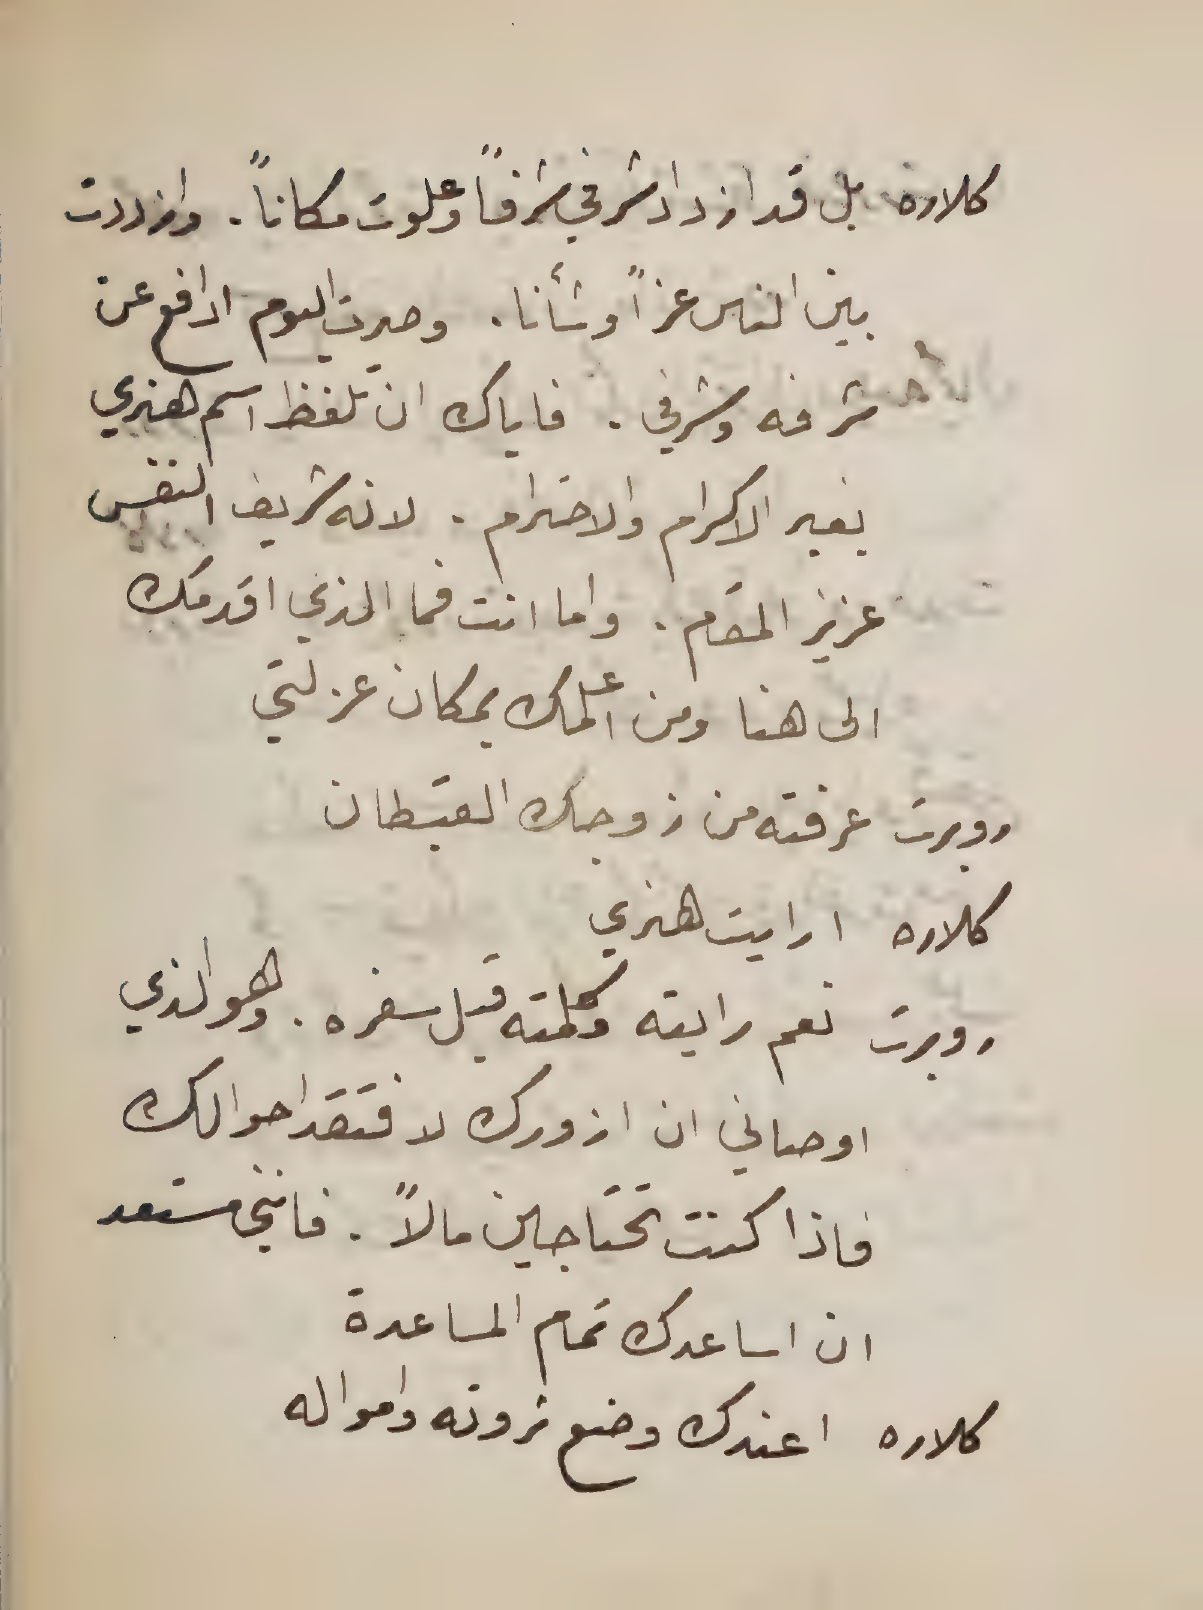 كلاره بل قد ازداد شرفي شرفاً وعلوت مكاناً. وازددت
بين الناس عزاً وشأنا. وصرت اليوم ادافع عن
شرفه وشرفي. فاياك ان تلفظ اسم هنري
بغير الاكرام والاحترام. لانه شريف النفس
عزيز المقام. واما انت فما الذي اقدمك
الى هنا ومن اعلمك بمكان عزلتي
روبرت عرفته من زوجك القبطان
كلاره ارايت هنري
روبرت نعم رايته وكلمته قبل سفره. وهو الذي
اوصاني ان ازورك لافتقد احوالك
فاذا كنت تحتاجين مالاً. فانني مستعد
ان اساعدك تمام المساعدة
كلاره اعندك وضع ثروته وامواله